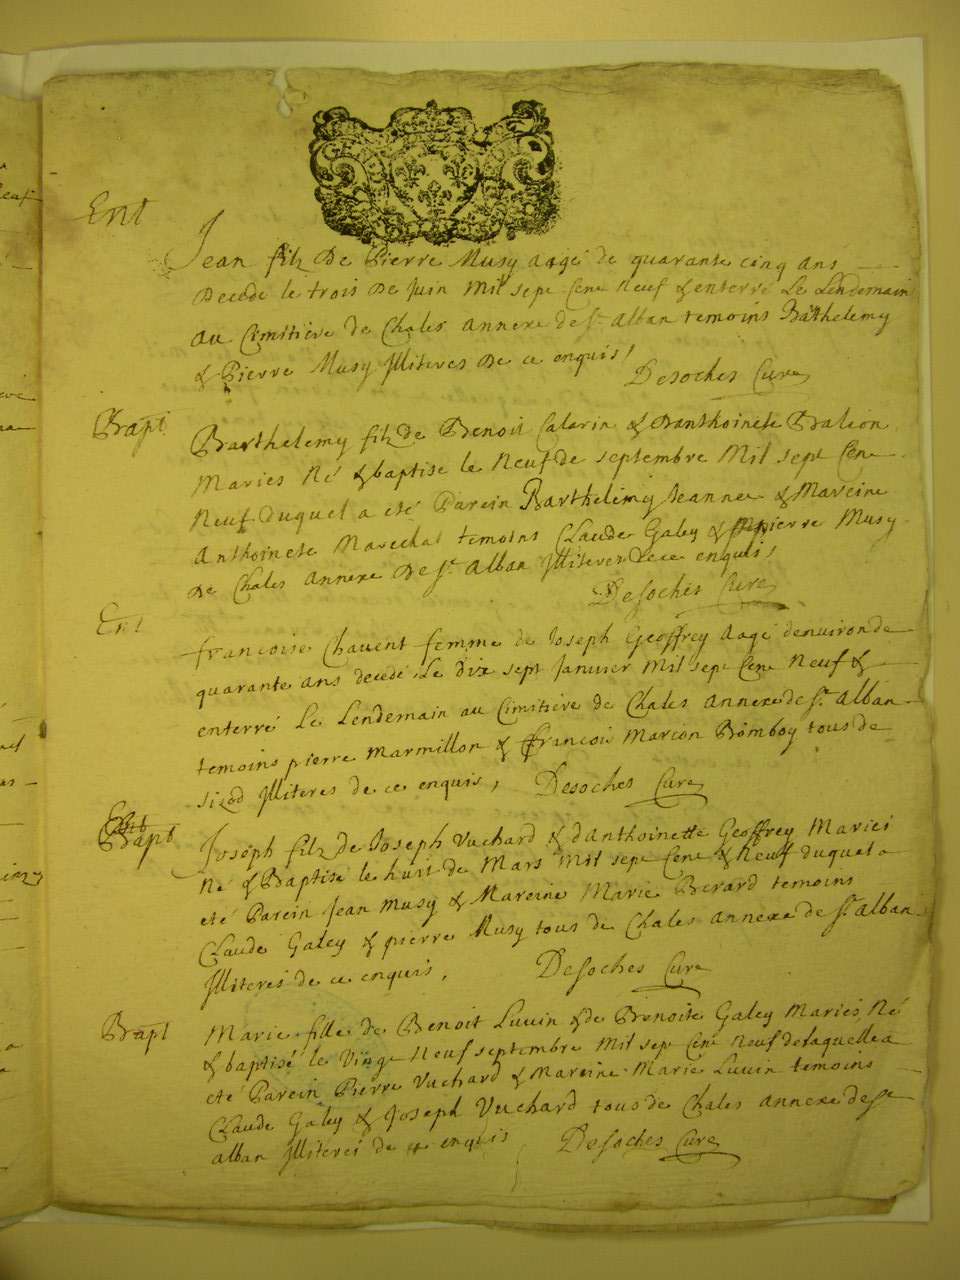 Ent
Jean filz De Pierre Musy aagé de quarante cinq ans
Decede le trois De Juin Mil sept Cene Neuf & enterré Le Lendemain
Au Cimitiere de Chales annexe de St Alban temoins Barthelemy
& Pierre Musy Illiteres De ce enquis /
Desoches Cure
Bapt
Barthelemy filz de Benoit Calarin & Danthoinete Balion
Maries Né & baptise le Neuf de septembre Mil sept Cene
Neuf duquel a eté Parein Barthelémy Jeannee & Mareine
Anthoinete Marechal temoins Claude Galey & pierre Musy
De Chales annexe De St Alban Illiteres De ce enquis /
Desoches Cure
Ent
francoise Chavent femme de Joseph Geoffrey Aagé denviron de
quarante ans decedé Le dix sept Janvier Mil sept Cene Neuf &
enterré Le Lendemain au Cimitiére de Chales annexe de St Alban
temoins pierre Marmillon & francois Marion Bomboy tous de
sizod Illiteres de ce enquis, Desoches Cure
Bapt
Joseph filz de Joseph Vuchard & danthoinette Geoffrey Mariés
Né & Baptise le huit de Mars Mil sept Cene & Neuf duquel a
eté Parein Jean Musy & Mareine Marie Berard temoins
Claude Galey & pierre Musy tous de Chales annexe de St Alban
Illiteres de ce enquis, Desoches Cure
Bapt
Marie fille de Benoit Luvin & de Benoite Galey Maries Né
& baptisé le Vinge Neuf septembre Mil sept Cene Neuf de laquelle a
eté Parein Pierre Vuchard & Mareine Marie Luvin temoins
Claude Galey & Joseph Vuchard tous de Chales annexe de St
alban Illiteres de ce enquis Desoches Cure